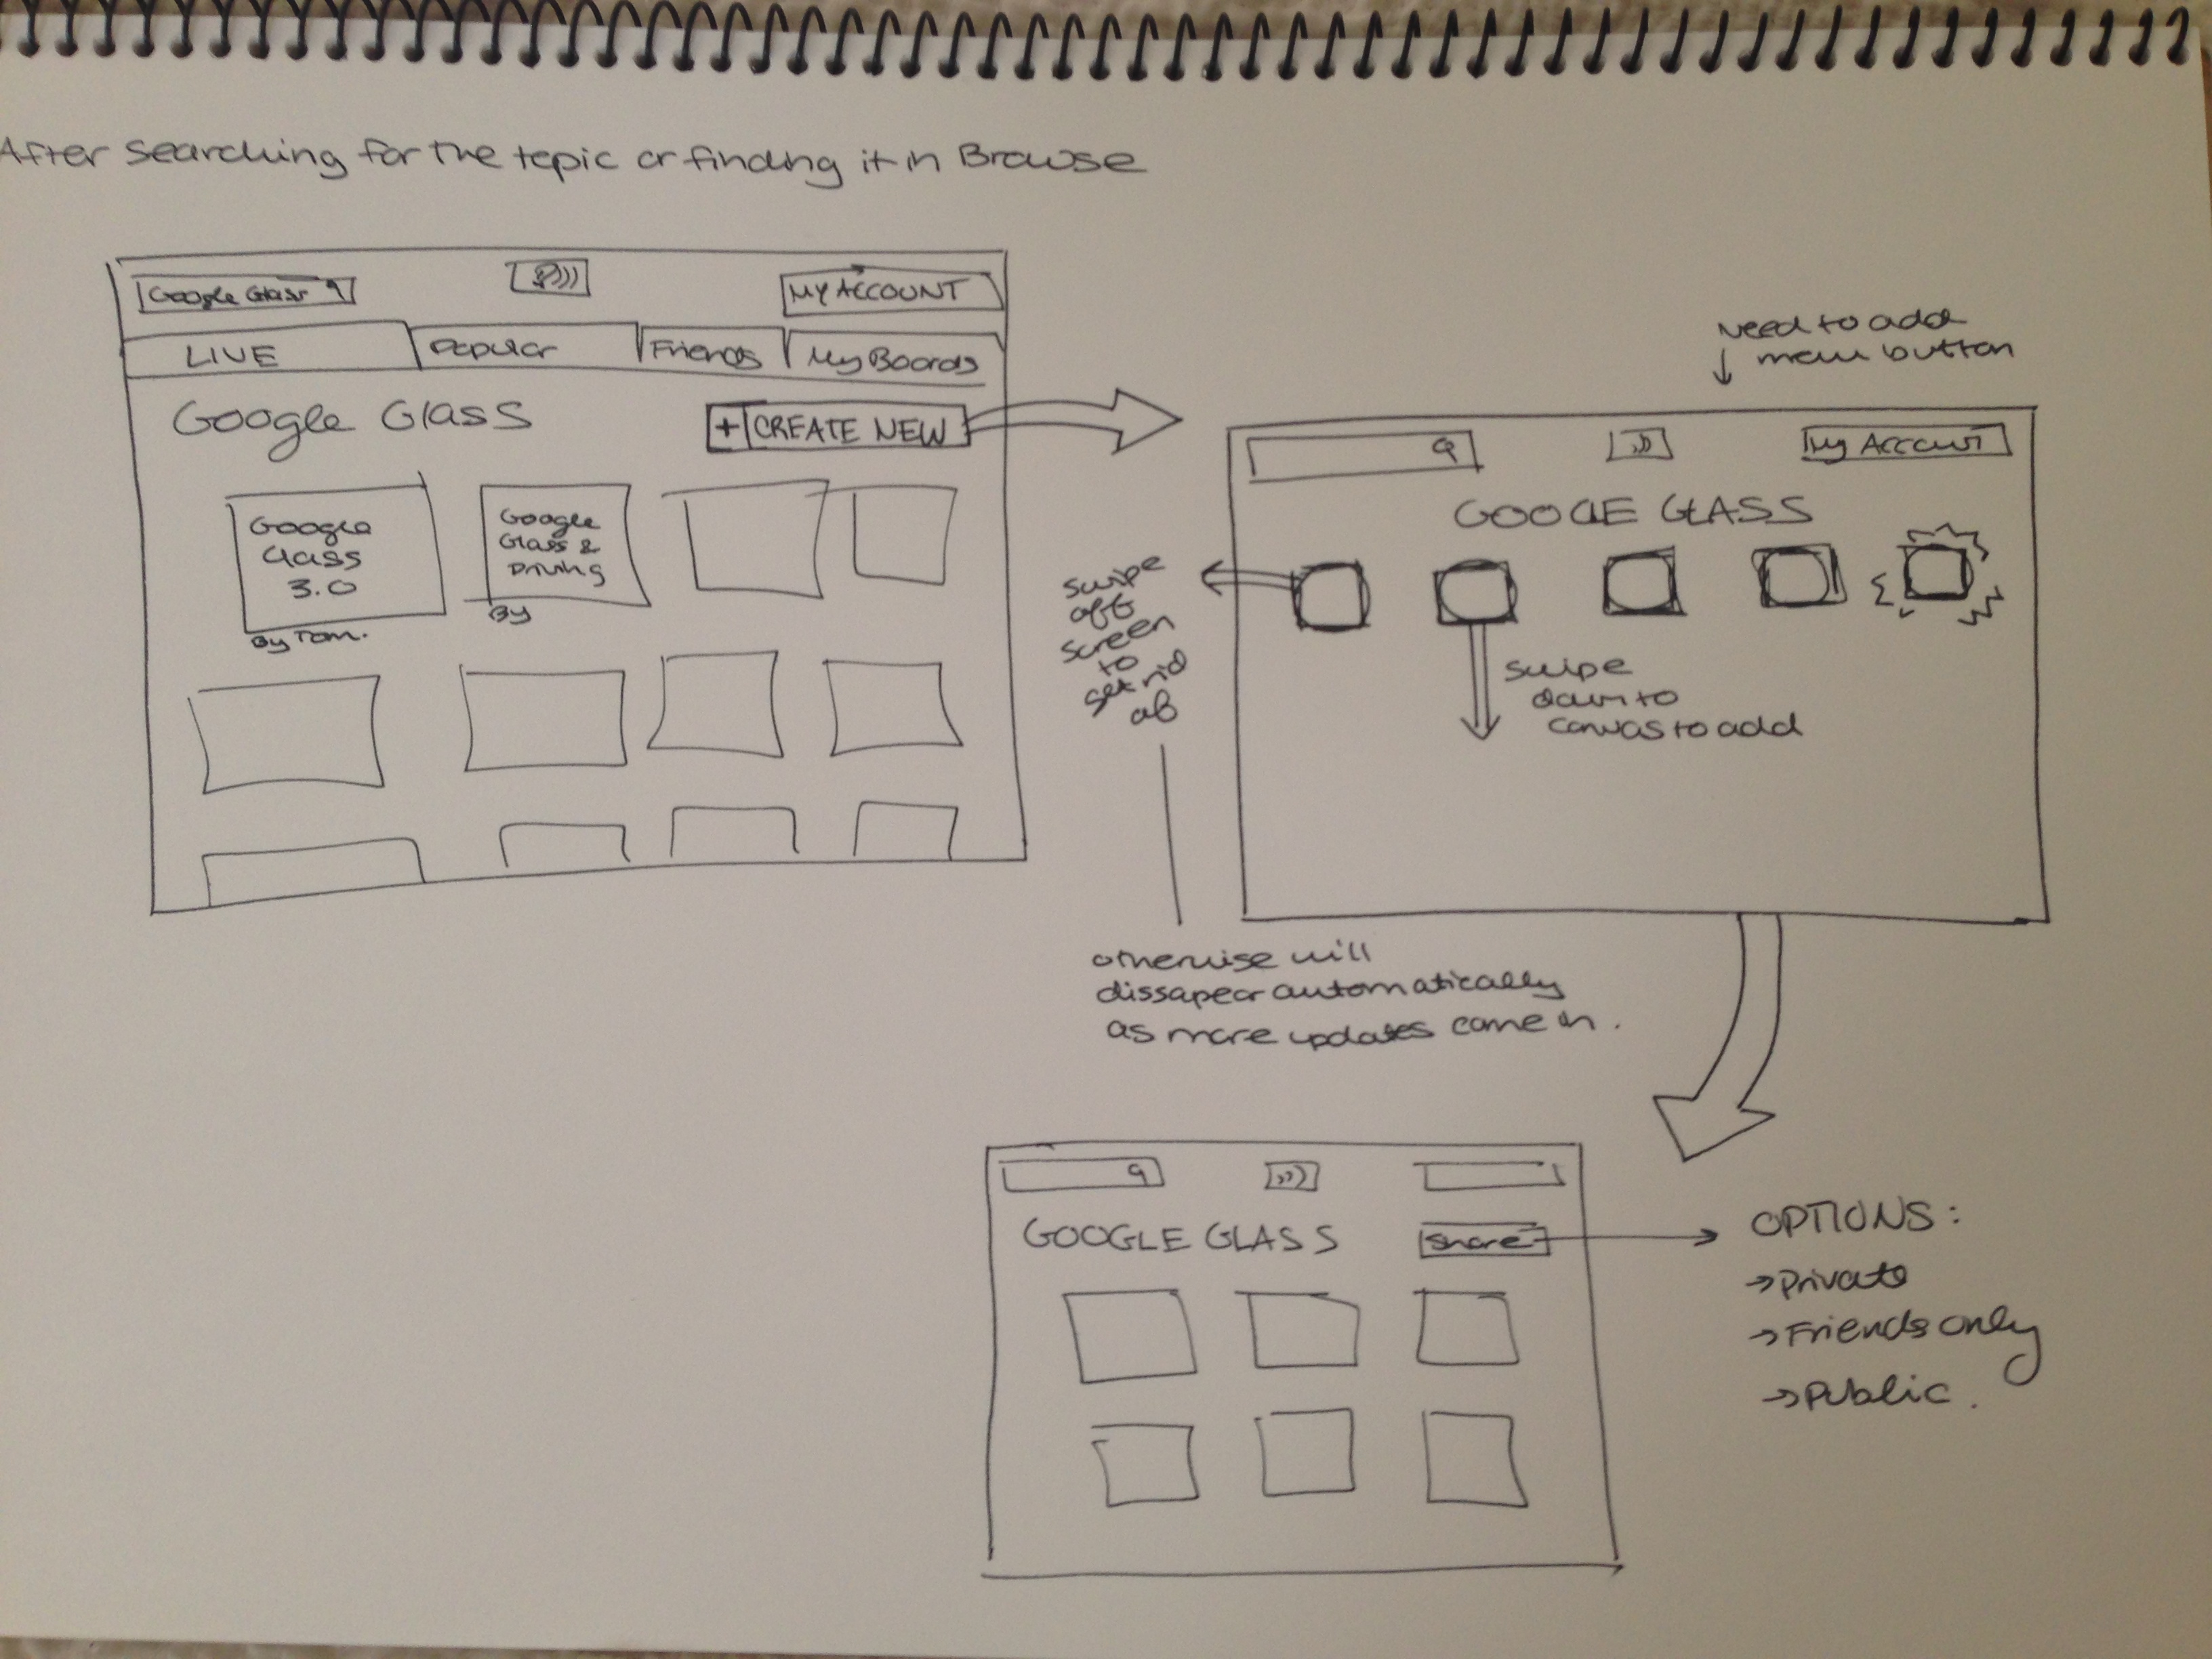 After searching for the topic or finding it in Browse
Google Glass
MY ACCOUNT
LIVE
Popular
Friends
My Boards
Google Glass
+ CREATE NEW
Google
Glass
3.0
By Tom.
Google
Glass &
Driving
By
Need to add
menu button
My Account
GOOGLE GLASS
swipe
off
screen
to
get rid
of
swipe
down to
canvas to add
otherwise will
dissapear automatically
as more updates come in.
GOOGLE GLASS
share
OPTIONS:
→ Private
→ Friends only
→ Public.